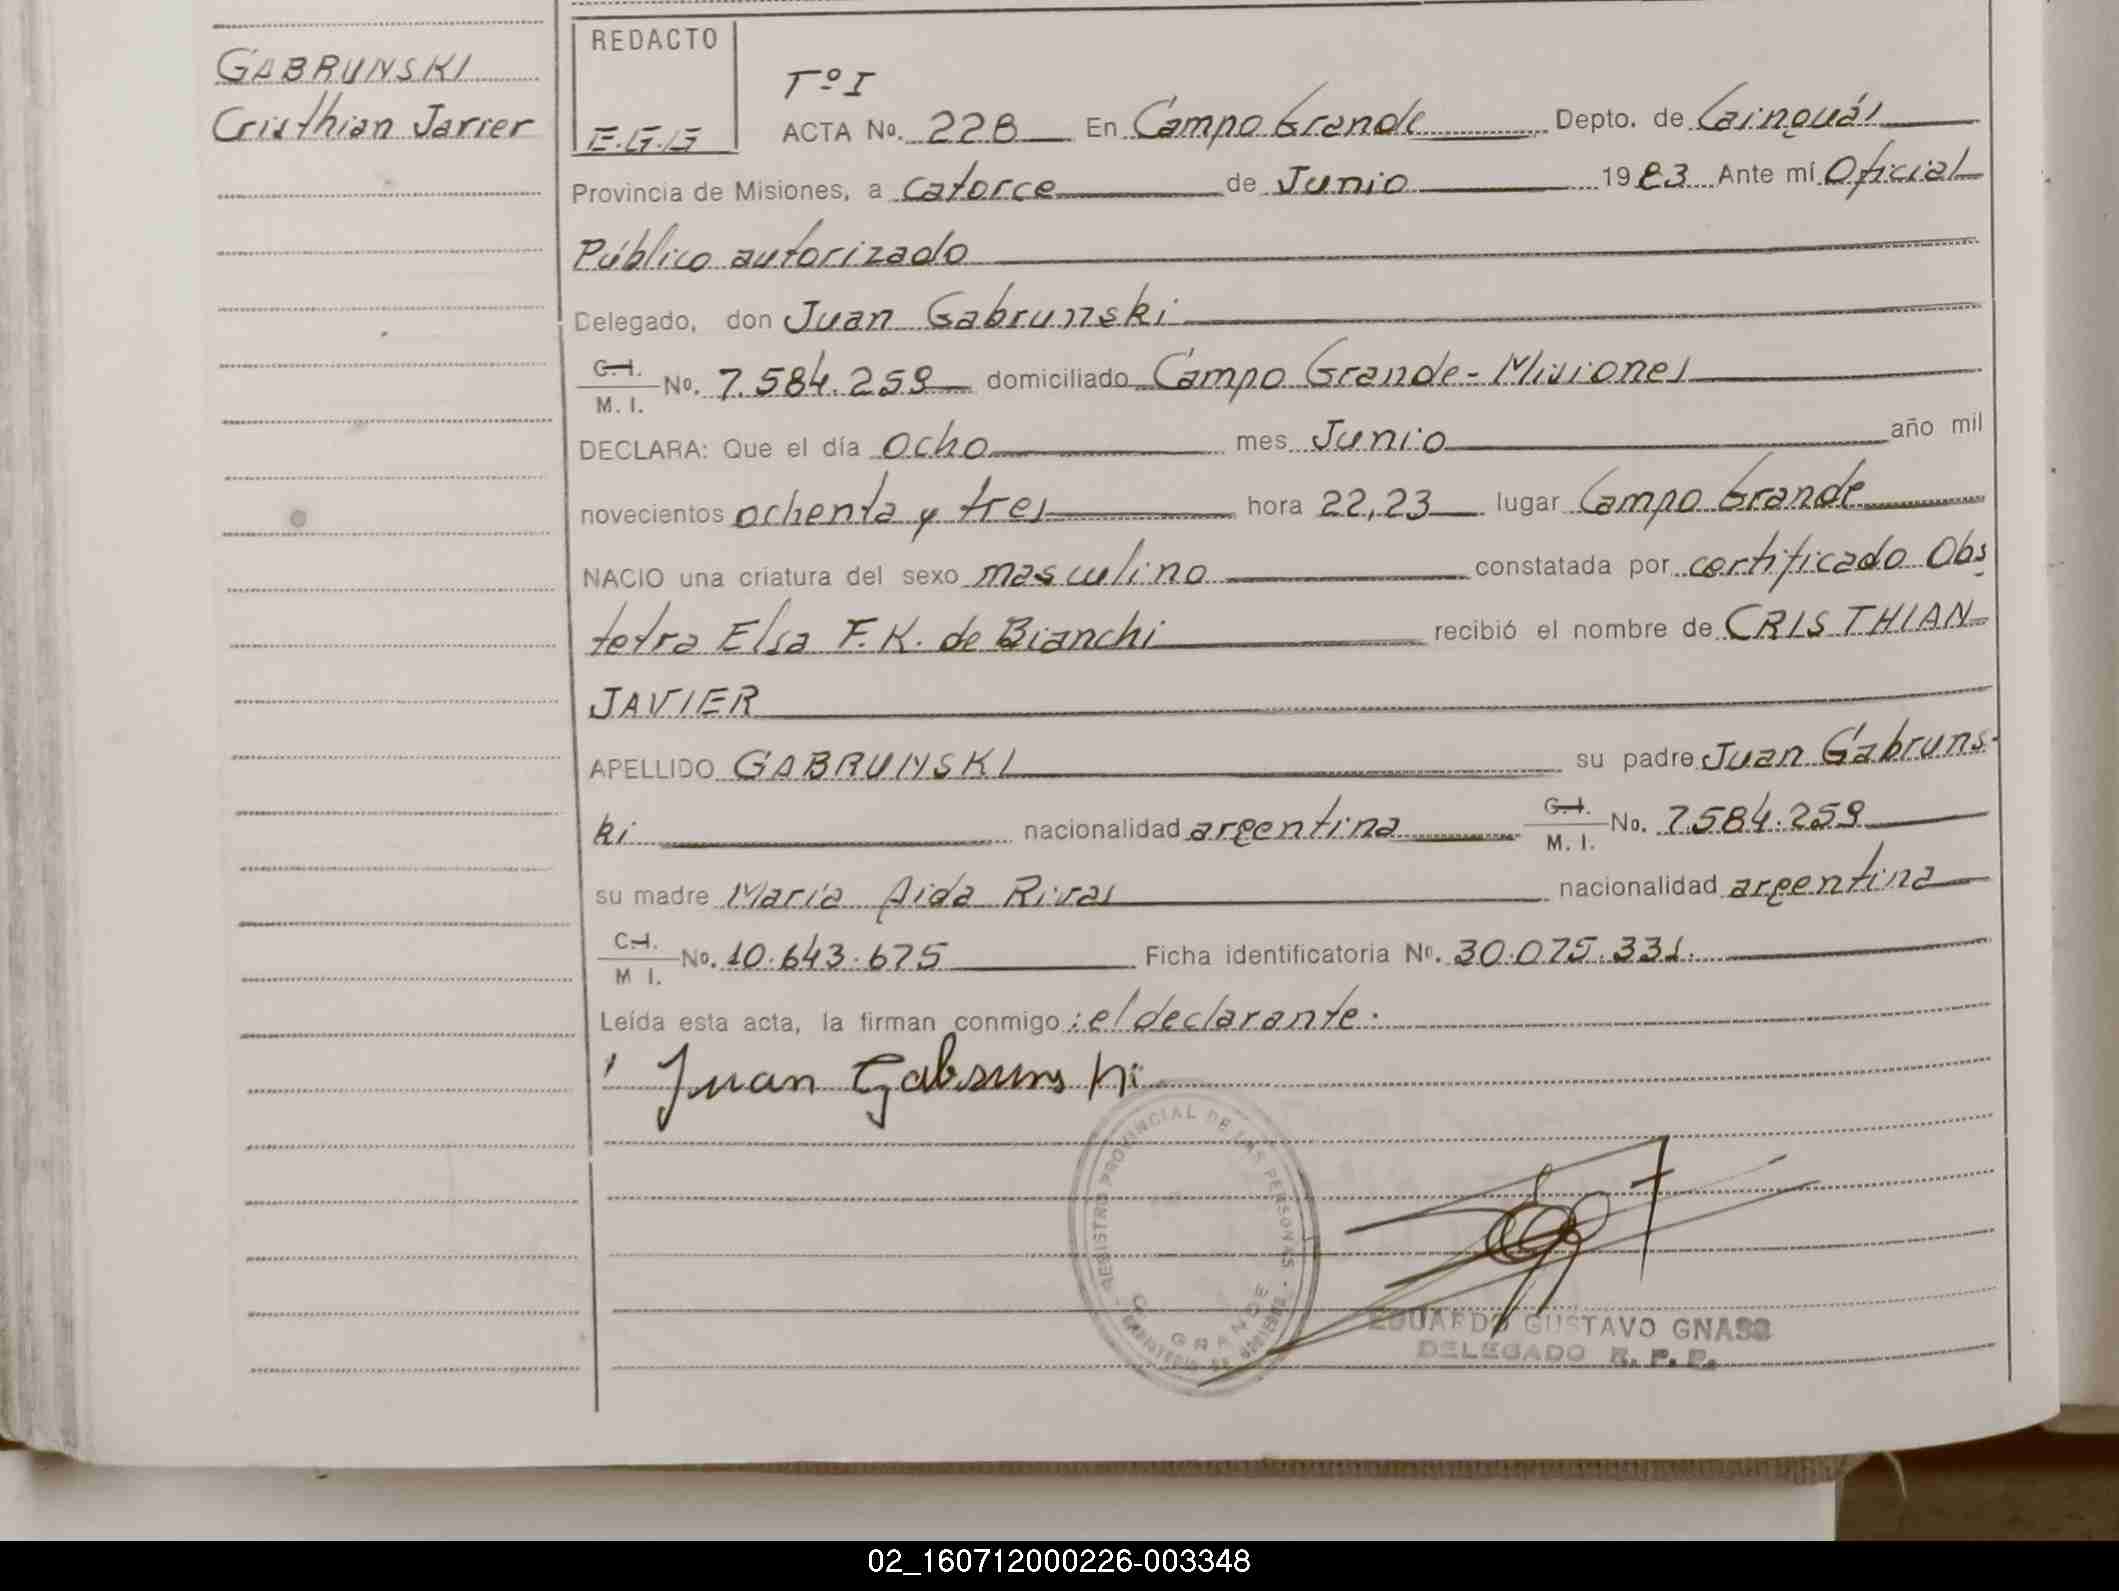 GABRUNSKI
Cristhian Javier
REDACTO
E.G.G
Tº I
ACTA No. 228 En Campo Grande Depto. de Cainguás
Provincia de Misiones, a catorce de Junio 1983 Ante mí Oficial
Público autorizado
Delegado, don Juan Gabrunski
C.I. M. I. No. 7.584.259 domiciliado Campo Grande - Misiones
DECLARA: Que el día ocho mes Junio año mil
novecientos ochenta y tres hora 22,23 lugar Campo Grande
NACIO una criatura del sexo masculino constatada por certificado Obs
tetra Elsa F.K. de Bianchi recibió el nombre de CRISTHIAN
JAVIER
APELLIDO GABRUNSKI su padre Juan Gabruns-
ki nacionalidad argentina C.I. M. I. No. 7.584.259
su madre María Aida Rivas nacionalidad argentina
C.I. M I. No. 10.643.675 Ficha identificatoria Nº. 30.075.331.
Leída esta acta, la firman conmigo: el declarante.
Juan Gabrunski
REGISTRO PROVINCIAL DE LAS PERSONAS
GRANDE
EDUARDO GUSTAVO GNASS
DELEGADO R. P. P.
02_160712000226-003348